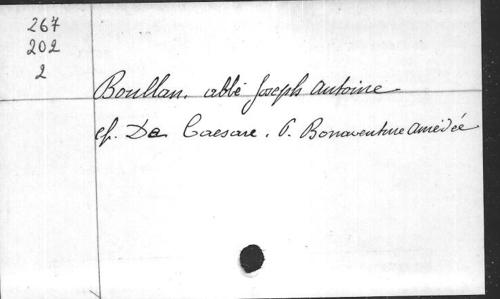 267
202
2
Boullan. abbé Joseph Antoine
cf. De Caesare. P. Bonaventure Amédée